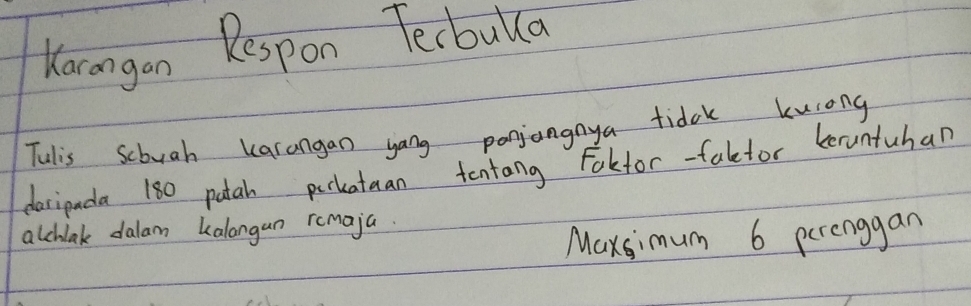 Karangan Respon Terbuka
Tulis sebuah karangan yang panjangnya tidak kurang
daripada 180 patah perkataan tentang Faktor-faktor keruntuhan
akhlak dalam kalangan remaja.
Maxsimum 6 perenggan